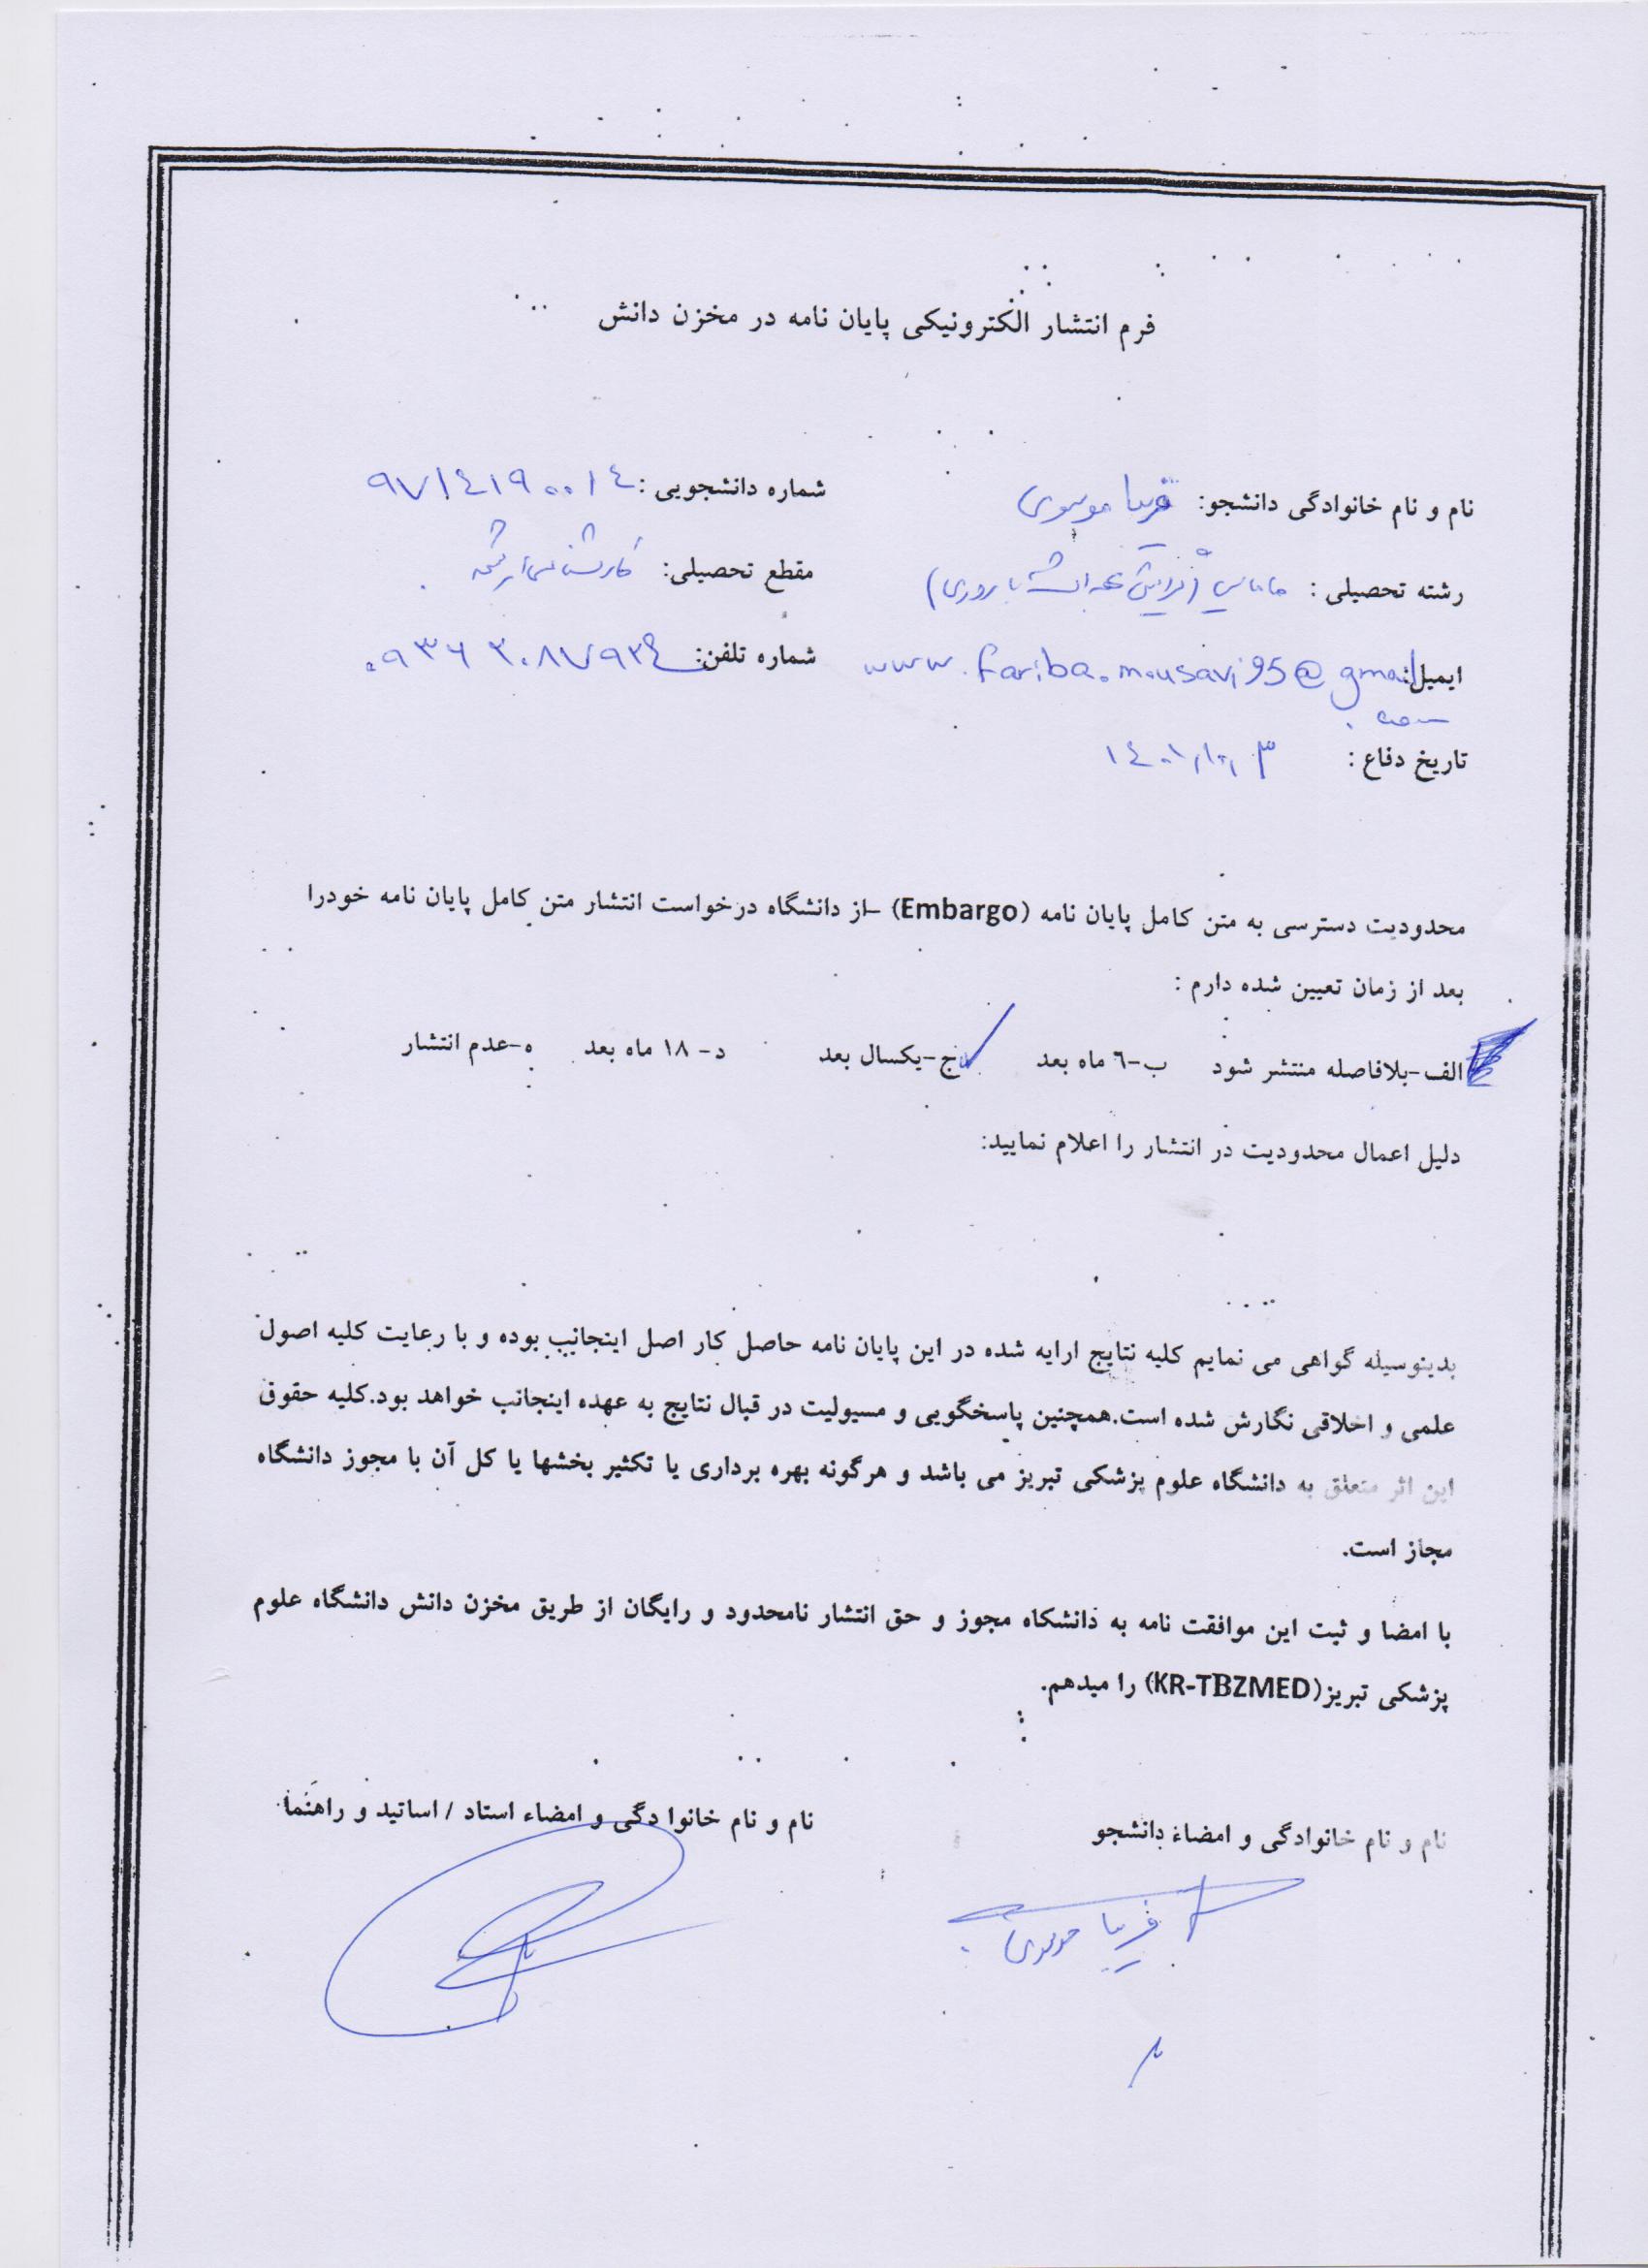 فرم انتشار الکترونیکی پایان نامه در مخزن دانش
نام و نام خانوادگی دانشجو: فریبا موسوی شماره دانشجویی: ٩٧١٤١٩٠٠١٤
رشته تحصیلی : مامایی باروری) مقطع تحصیلی: کارشناسی ارشد
ایمیل: www.fariba.mousavi95@gmail شماره تلفن:
.com
تاریخ دفاع : ١٤٠١/١٠/٠٣
محدودیت دسترسی به متن کامل پایان نامه (Embargo) –از دانشگاه درخواست انتشار متن کامل پایان نامه خودرا
بعد از زمان تعیین شده دارم :
الف-بلافاصله منتشر شود ب-٦ ماه بعد ج-یکسال بعد د- ١٨ ماه بعد ه-عدم انتشار
دلیل اعمال محدودیت در انتشار را اعلام نمایید:
بدینوسیله گواهی می نمایم کلیه نتایج ارایه شده در این پایان نامه حاصل کار اصل اینجانب بوده و با رعایت کلیه اصول
علمی و اخلاقی نگارش شده است.همچنین پاسخگویی و مسیولیت در قبال نتایج به عهده اینجانب خواهد بود.کلیه حقوق
این اثر متعلق به دانشگاه علوم پزشکی تبریز می باشد و هرگونه بهره برداری یا تکثیر بخشها یا کل آن با مجوز دانشگاه
مجاز است.
با امضا و ثبت این موافقت نامه به دانشکاه مجوز و حق انتشار نامحدود و رایگان از طریق مخزن دانش دانشگاه علوم
پزشکی تبریز(KR-TBZMED) را میدهم.
نام و نام خانوادگی و امضاء دانشجو نام و نام خانوا دگی و امضاء استاد / اساتید و راهنما
فریبا موسوی